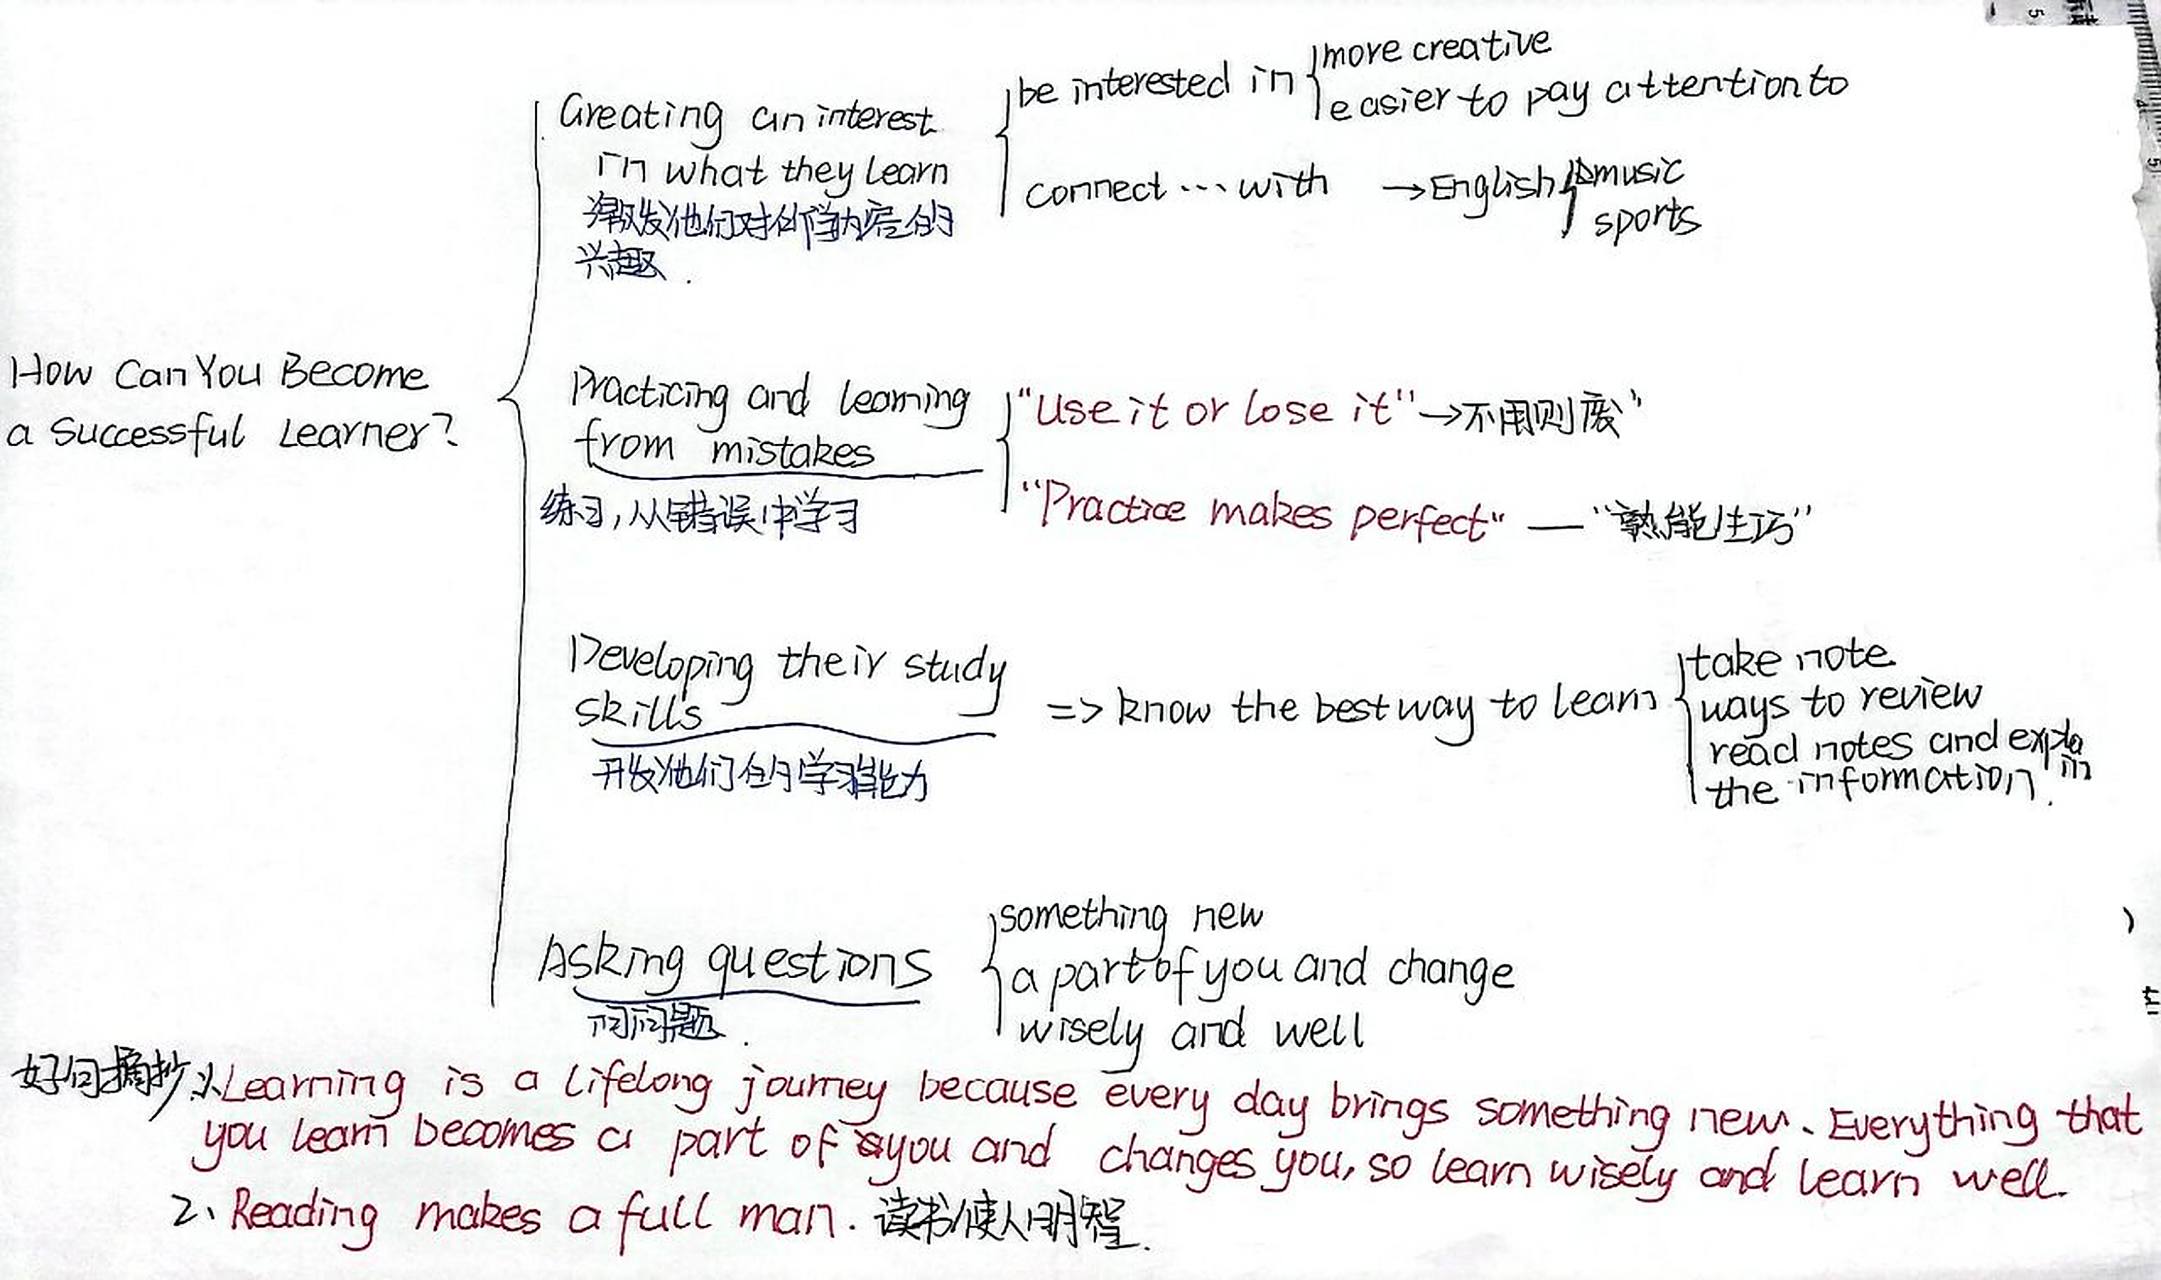 How Can You Become
a Successful Learner?
Creating an interest
in what they learn
激发他们对所学内容的
兴趣.
be interested in
more creative
easier to pay attention to
connect … with → English
music
sports
Practicing and learning
from mistakes
练习,从错误中学习
"Use it or lose it" → 不用则废"
"Practice makes perfect" — "熟能生巧"
Developing their study
skills
开发他们的学习能力
=> know the best way to learn
take note
ways to review
read notes and explain
the information.
Asking questions
问问题.
something new
a part of you and change
wisely and well
好句摘抄:1.Learning is a lifelong journey because every day brings something new. Everything that
you learn becomes a part of you and changes you, so learn wisely and learn well.
2、Reading makes a full man. 读书使人明智.